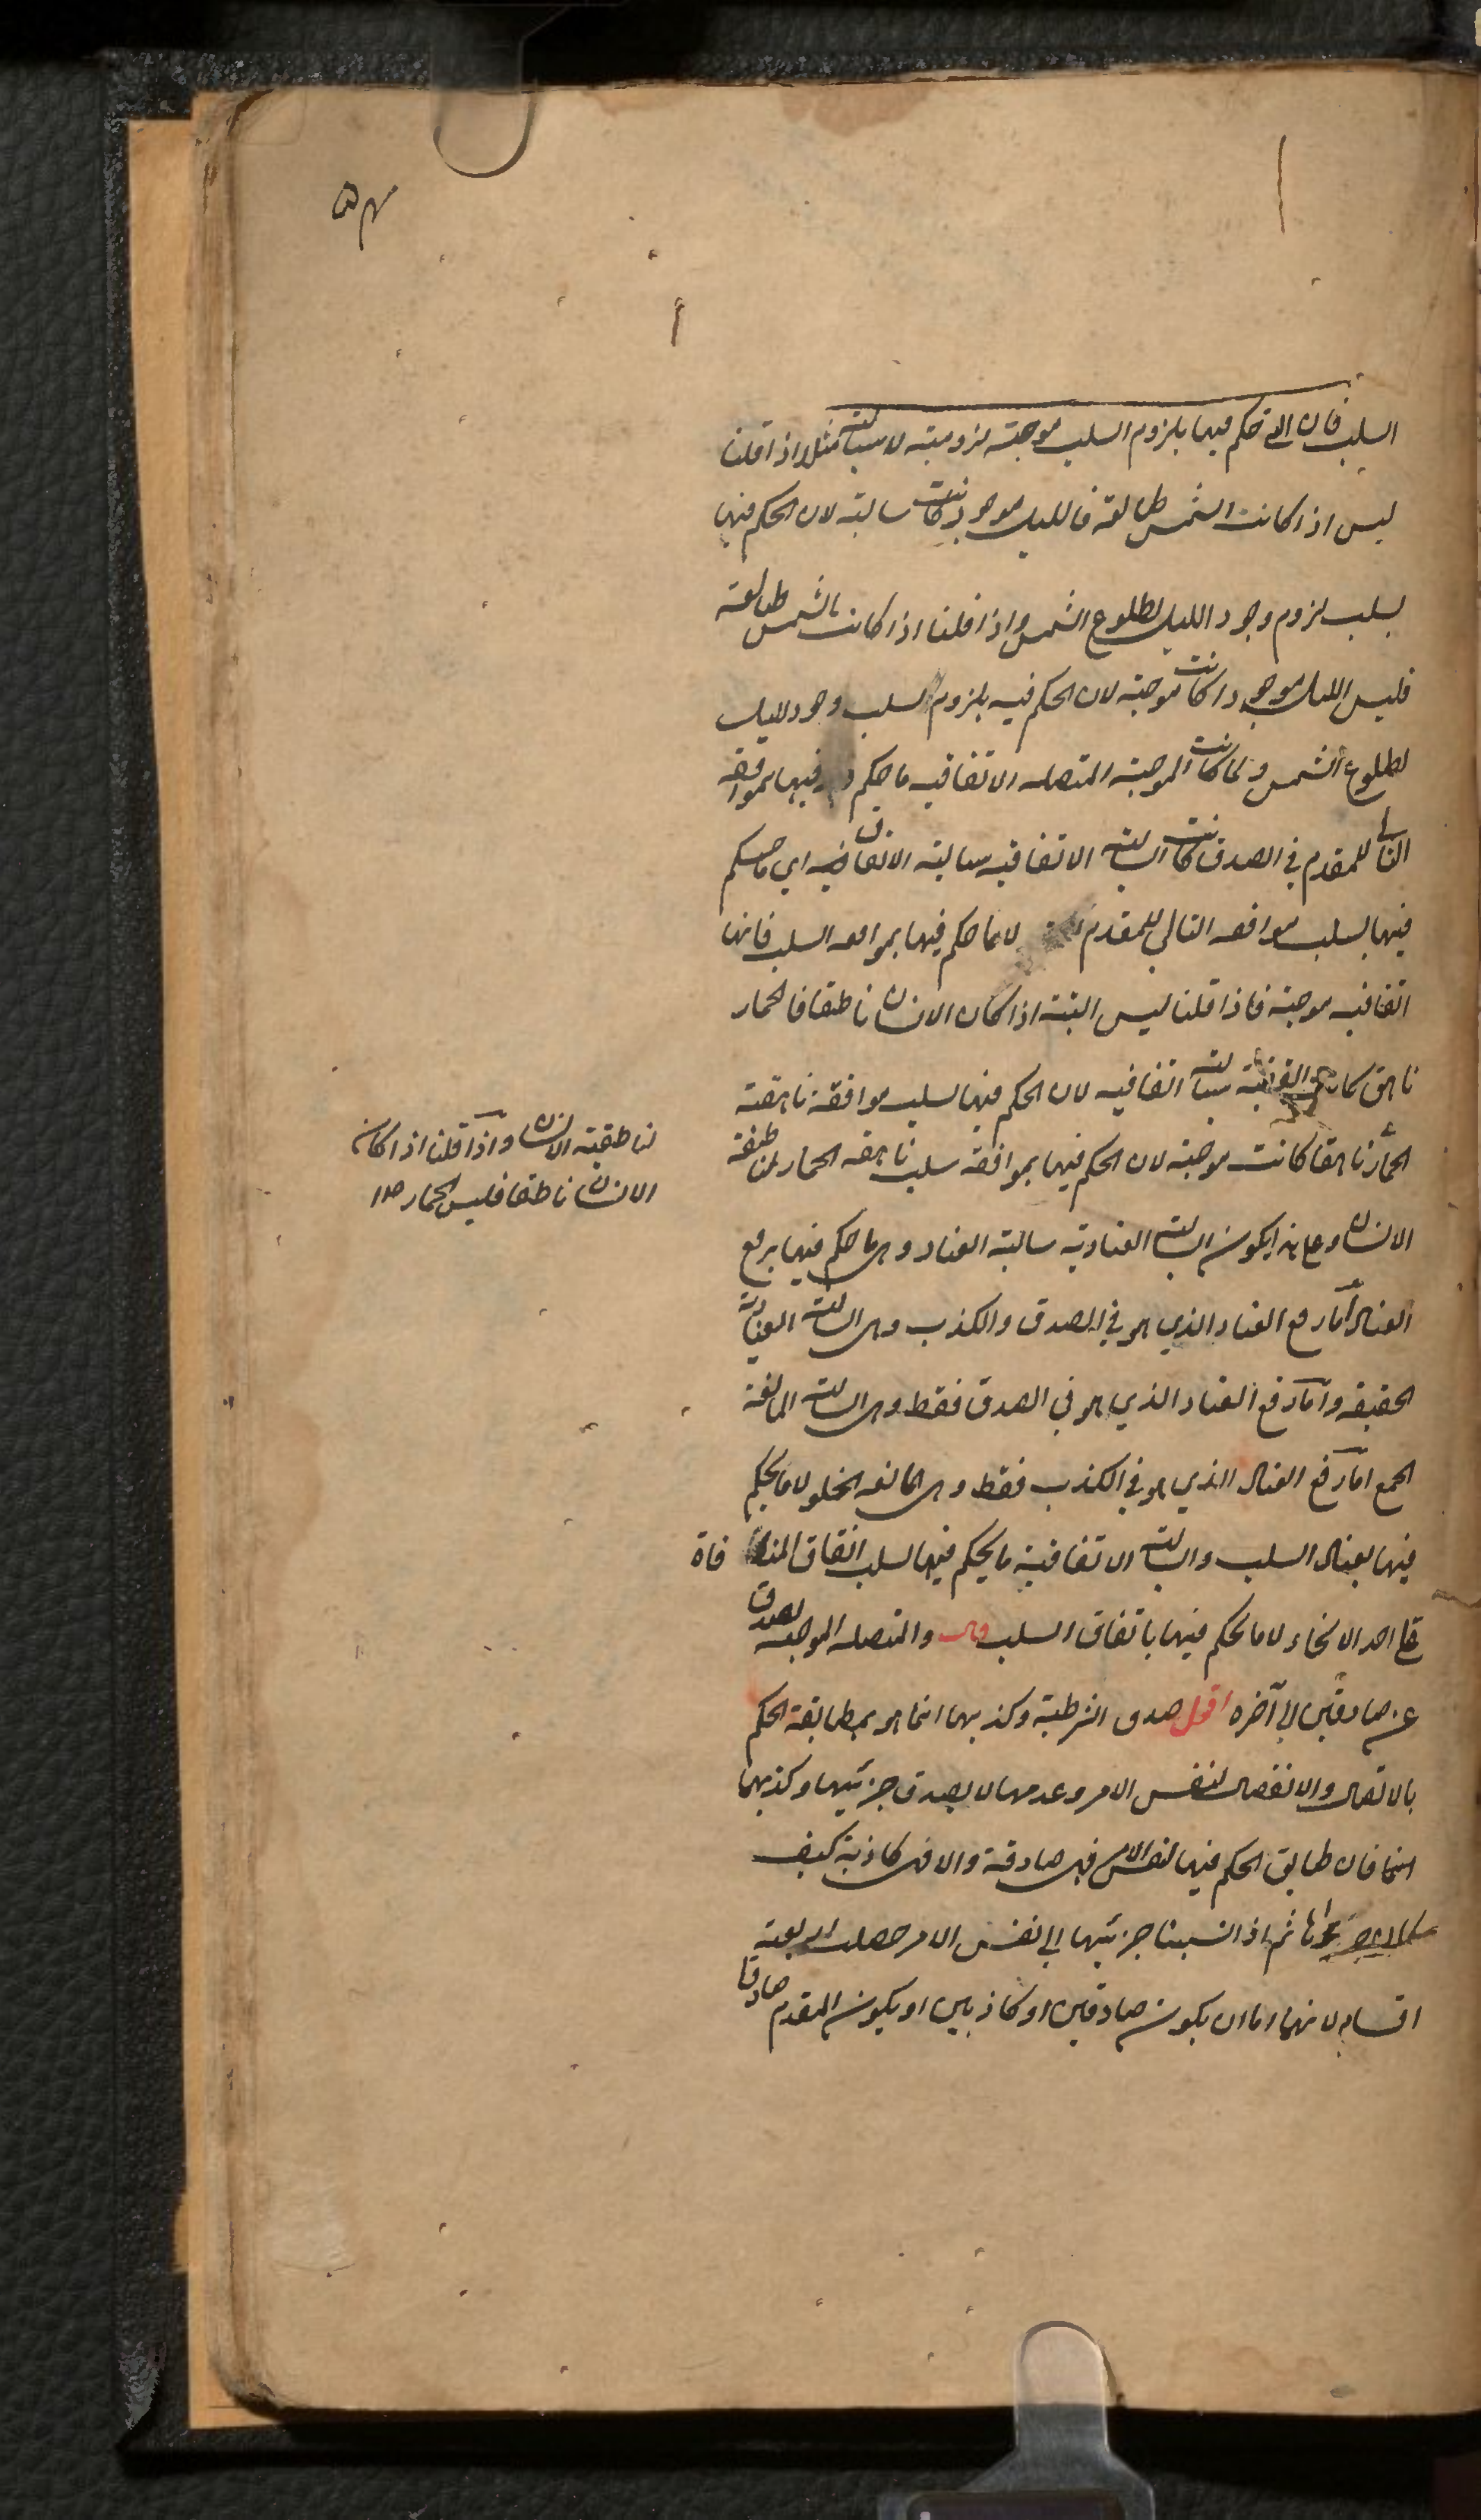 السلب فان التي حكم فيها بلزوم السلب موجبة لزومية لا سالبة مثلا اذا قلنا
ليس اذا كانت الشمس طالعة فالليل موجود كانت سالبة لان الحكم فيها
بسلب لزوم وجود الليل لطلوع الشمس واذا قلنا اذا كانت الشمس طالعة
فليس الليل موجودا كانت موجبة لان الحكم فيه بلزوم السلب وجود الليل
لطلوع الشمس ولما كانت الموجبة المتصلة الاتفاقية ما حكم فيها بموافقة
التالي للمقدم في الصدق كانت السالبة الاتفاقية سالبة الاتفاقية اي ما حكم
فيها بسلب موافقة التالي للمقدم لا ما حكم فيها بموافقة السلب فانها
اتفاقية موجبة فاذا قلنا ليس البتة اذا كان الانسان ناطقا فالحمار
ناهق كان سالبة اتفاقية لان الحكم فيها بسلب موافقة ناهقية
الحمار لناطقية الانسان واذا قلنا اذا كان
الانسان ناطقا فليس الحمار
ناهقا كانت موجبة لان الحكم فيها بموافقة سلب ناهقة الحمار لناطقة
الانسان وعلى هذا يكون السالبة العنادية سالبة العناد وهي ما حكم فيها برفع
العناد اما رفع العناد الذي هو في الصدق والكذب وهي السالبة العنادية
الحقيقة واما رفع العناد الذي هو في الصدق فقط وهي السالبة المانعة
الجمع اما رفع العناد الذي هو في الكذب فقط وهي المانعة الخلو لا ما يحكم
فيها بعناد السلب والسالبة الاتفاقية ما يحكم فيها بسلب اتفاق المنافاة
على احد الانحاء لا ما يحكم فيها باتفاق السلب قال والمتصلة الموجبة تصدق
عن صادقين الى آخره اقول صدق الشرطية وكذبها انما هو بمطابقة الحكم
بالاتصال والانفصال لنفس الامر وعدمها لا بصدق جزئيها وكذبهما
انما فان طابق الحكم فيها لنفس الامر فهي صادقة والا فهي كاذبة كيف
ثم اذا نسبنا جزئيها الى نفس الامر حصلت اربعة
اقسام لانهما اما ان يكون صادقين او كاذبين او يكون المقدم صادقا